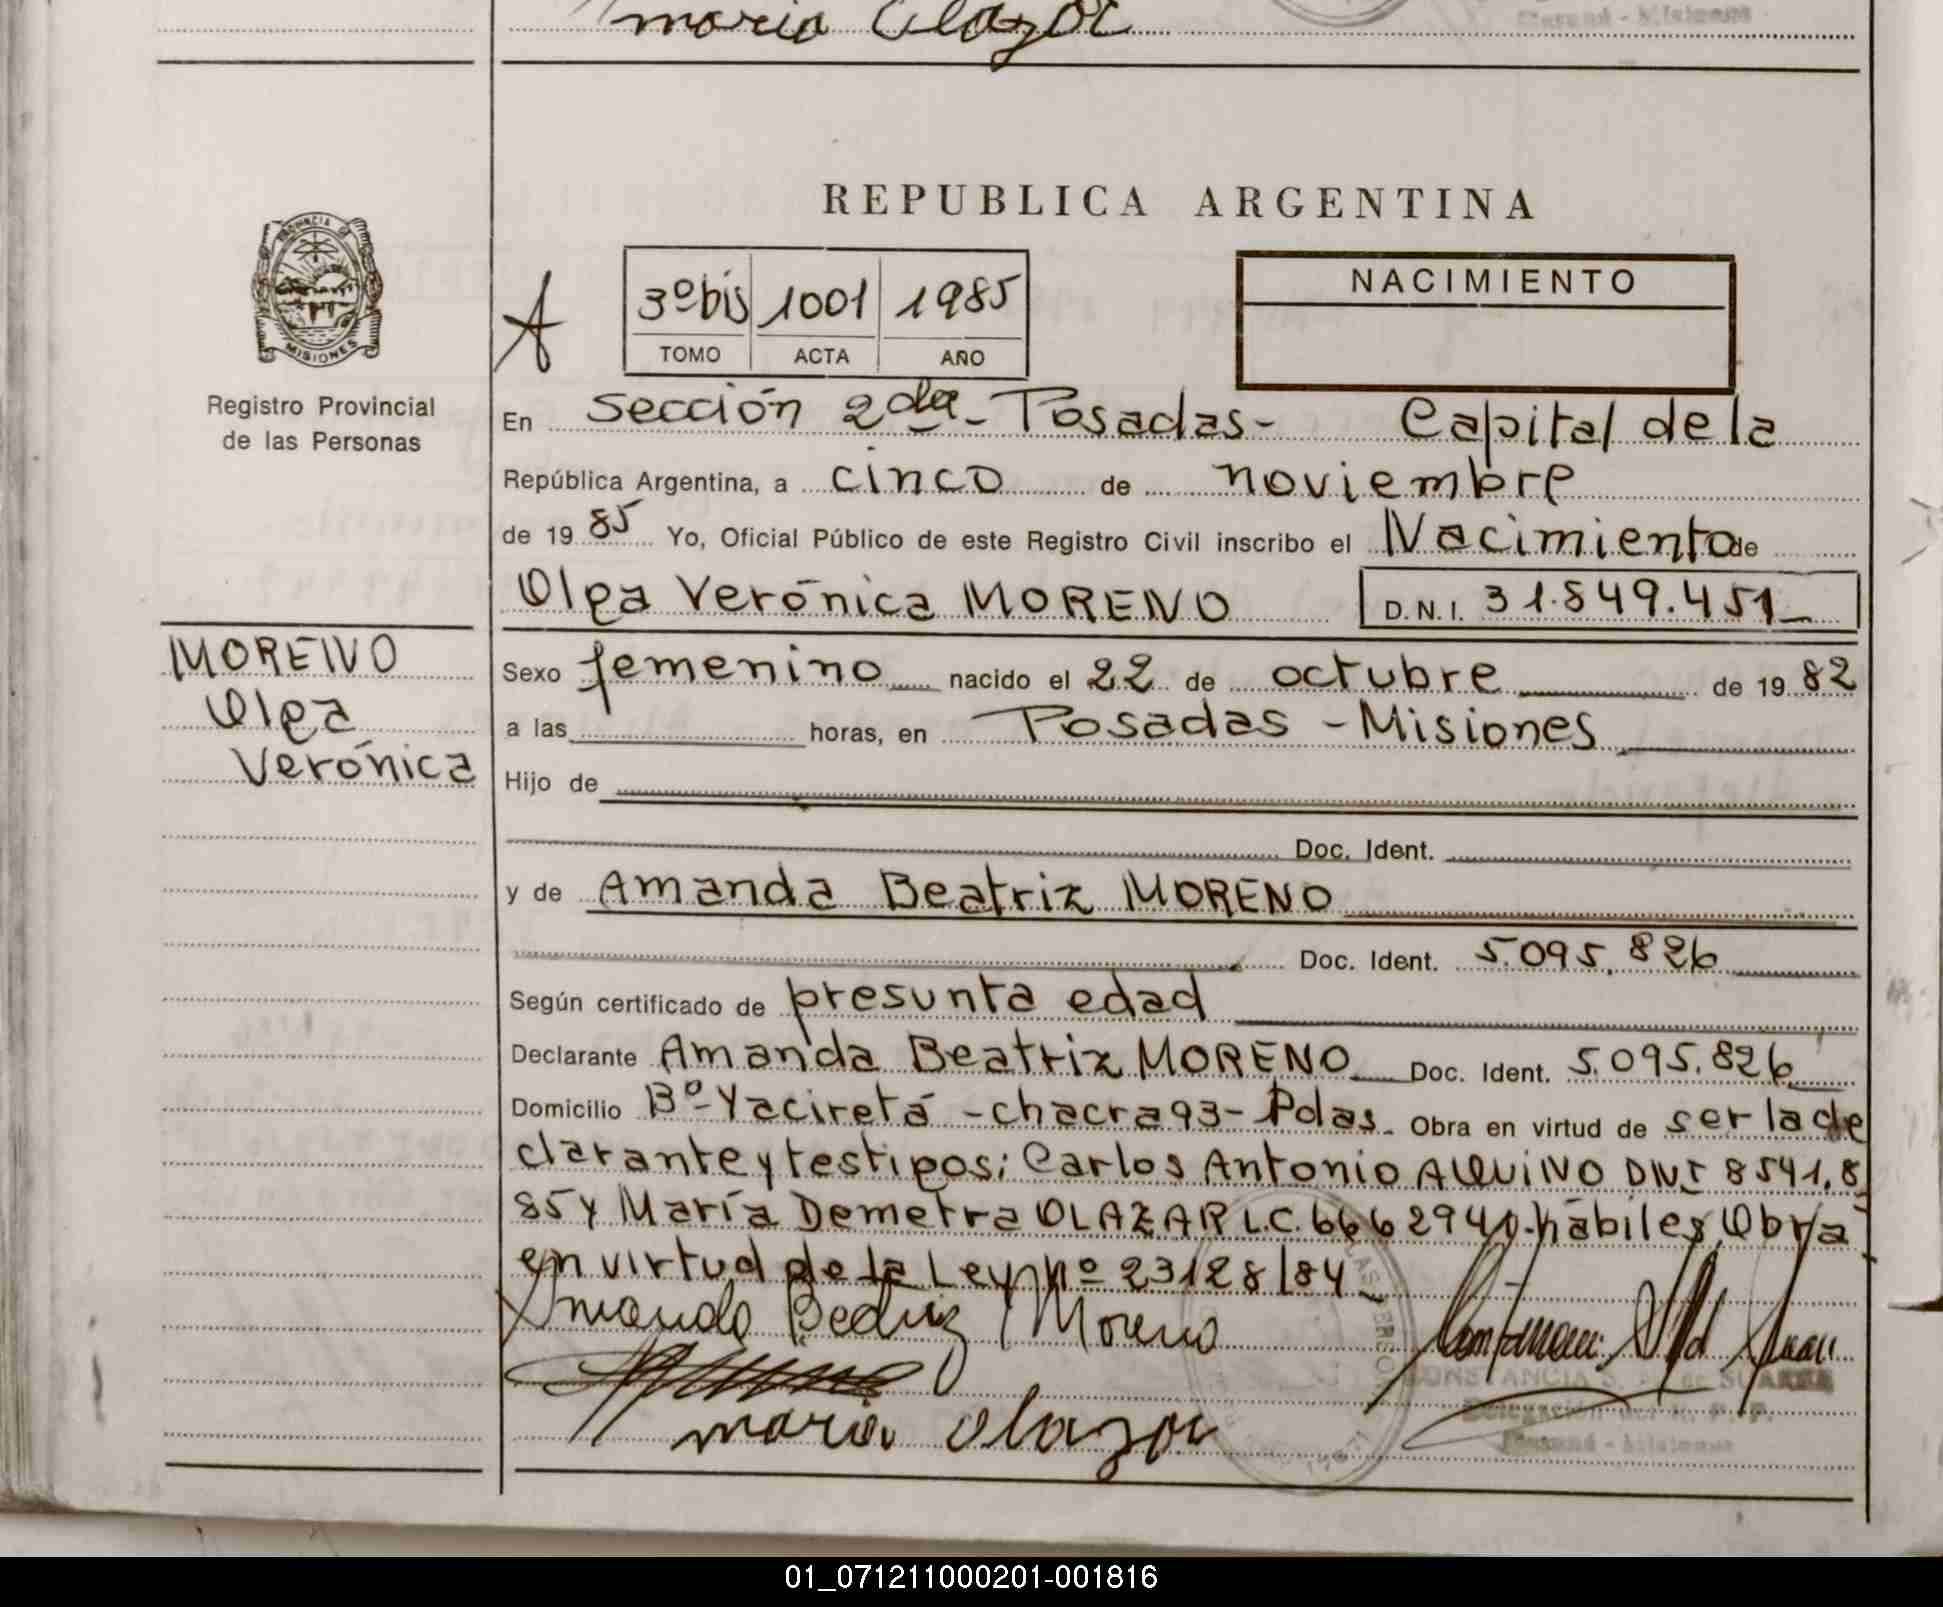 maria Olazar
REPUBLICA ARGENTINA
PROVINCIA DE
MISIONES
Registro Provincial
de las Personas
A
3º bis 1001 1985
TOMO ACTA AÑO
NACIMIENTO
En Sección 2da - Posadas - Capital de la
República Argentina, a cinco de noviembre
de 1985 Yo, Oficial Público de este Registro Civil inscribo el Nacimiento de
Olga Verónica MORENO D.N.I. 31.849.451
MORENO
Olga
Verónica
Sexo femenino nacido el 22 de octubre de 1982
a las horas, en Posadas - Misiones
Hijo de
Doc. Ident.
y de Amanda Beatriz MORENO
Doc. Ident. 5.095.826
Según certificado de presunta edad
Declarante Amanda Beatriz MORENO Doc. Ident. 5.095.826
Domicilio Bº - Yaciretá - chacra 93 - Pdas. Obra en virtud de ser la de
clarante y testigos: Carlos Antonio AQUINO DNI 8541.8
85 y María Demetra OLAZAR L.C. 6662940 - hábiles, Obra
en virtud de la Ley nº 23128/84
Amanda Beatriz Moreno
maria Olazar
CONSTANCIA S. de SUAREZ
Delegación del R. P. P.
Misiones
01_071211000201-001816